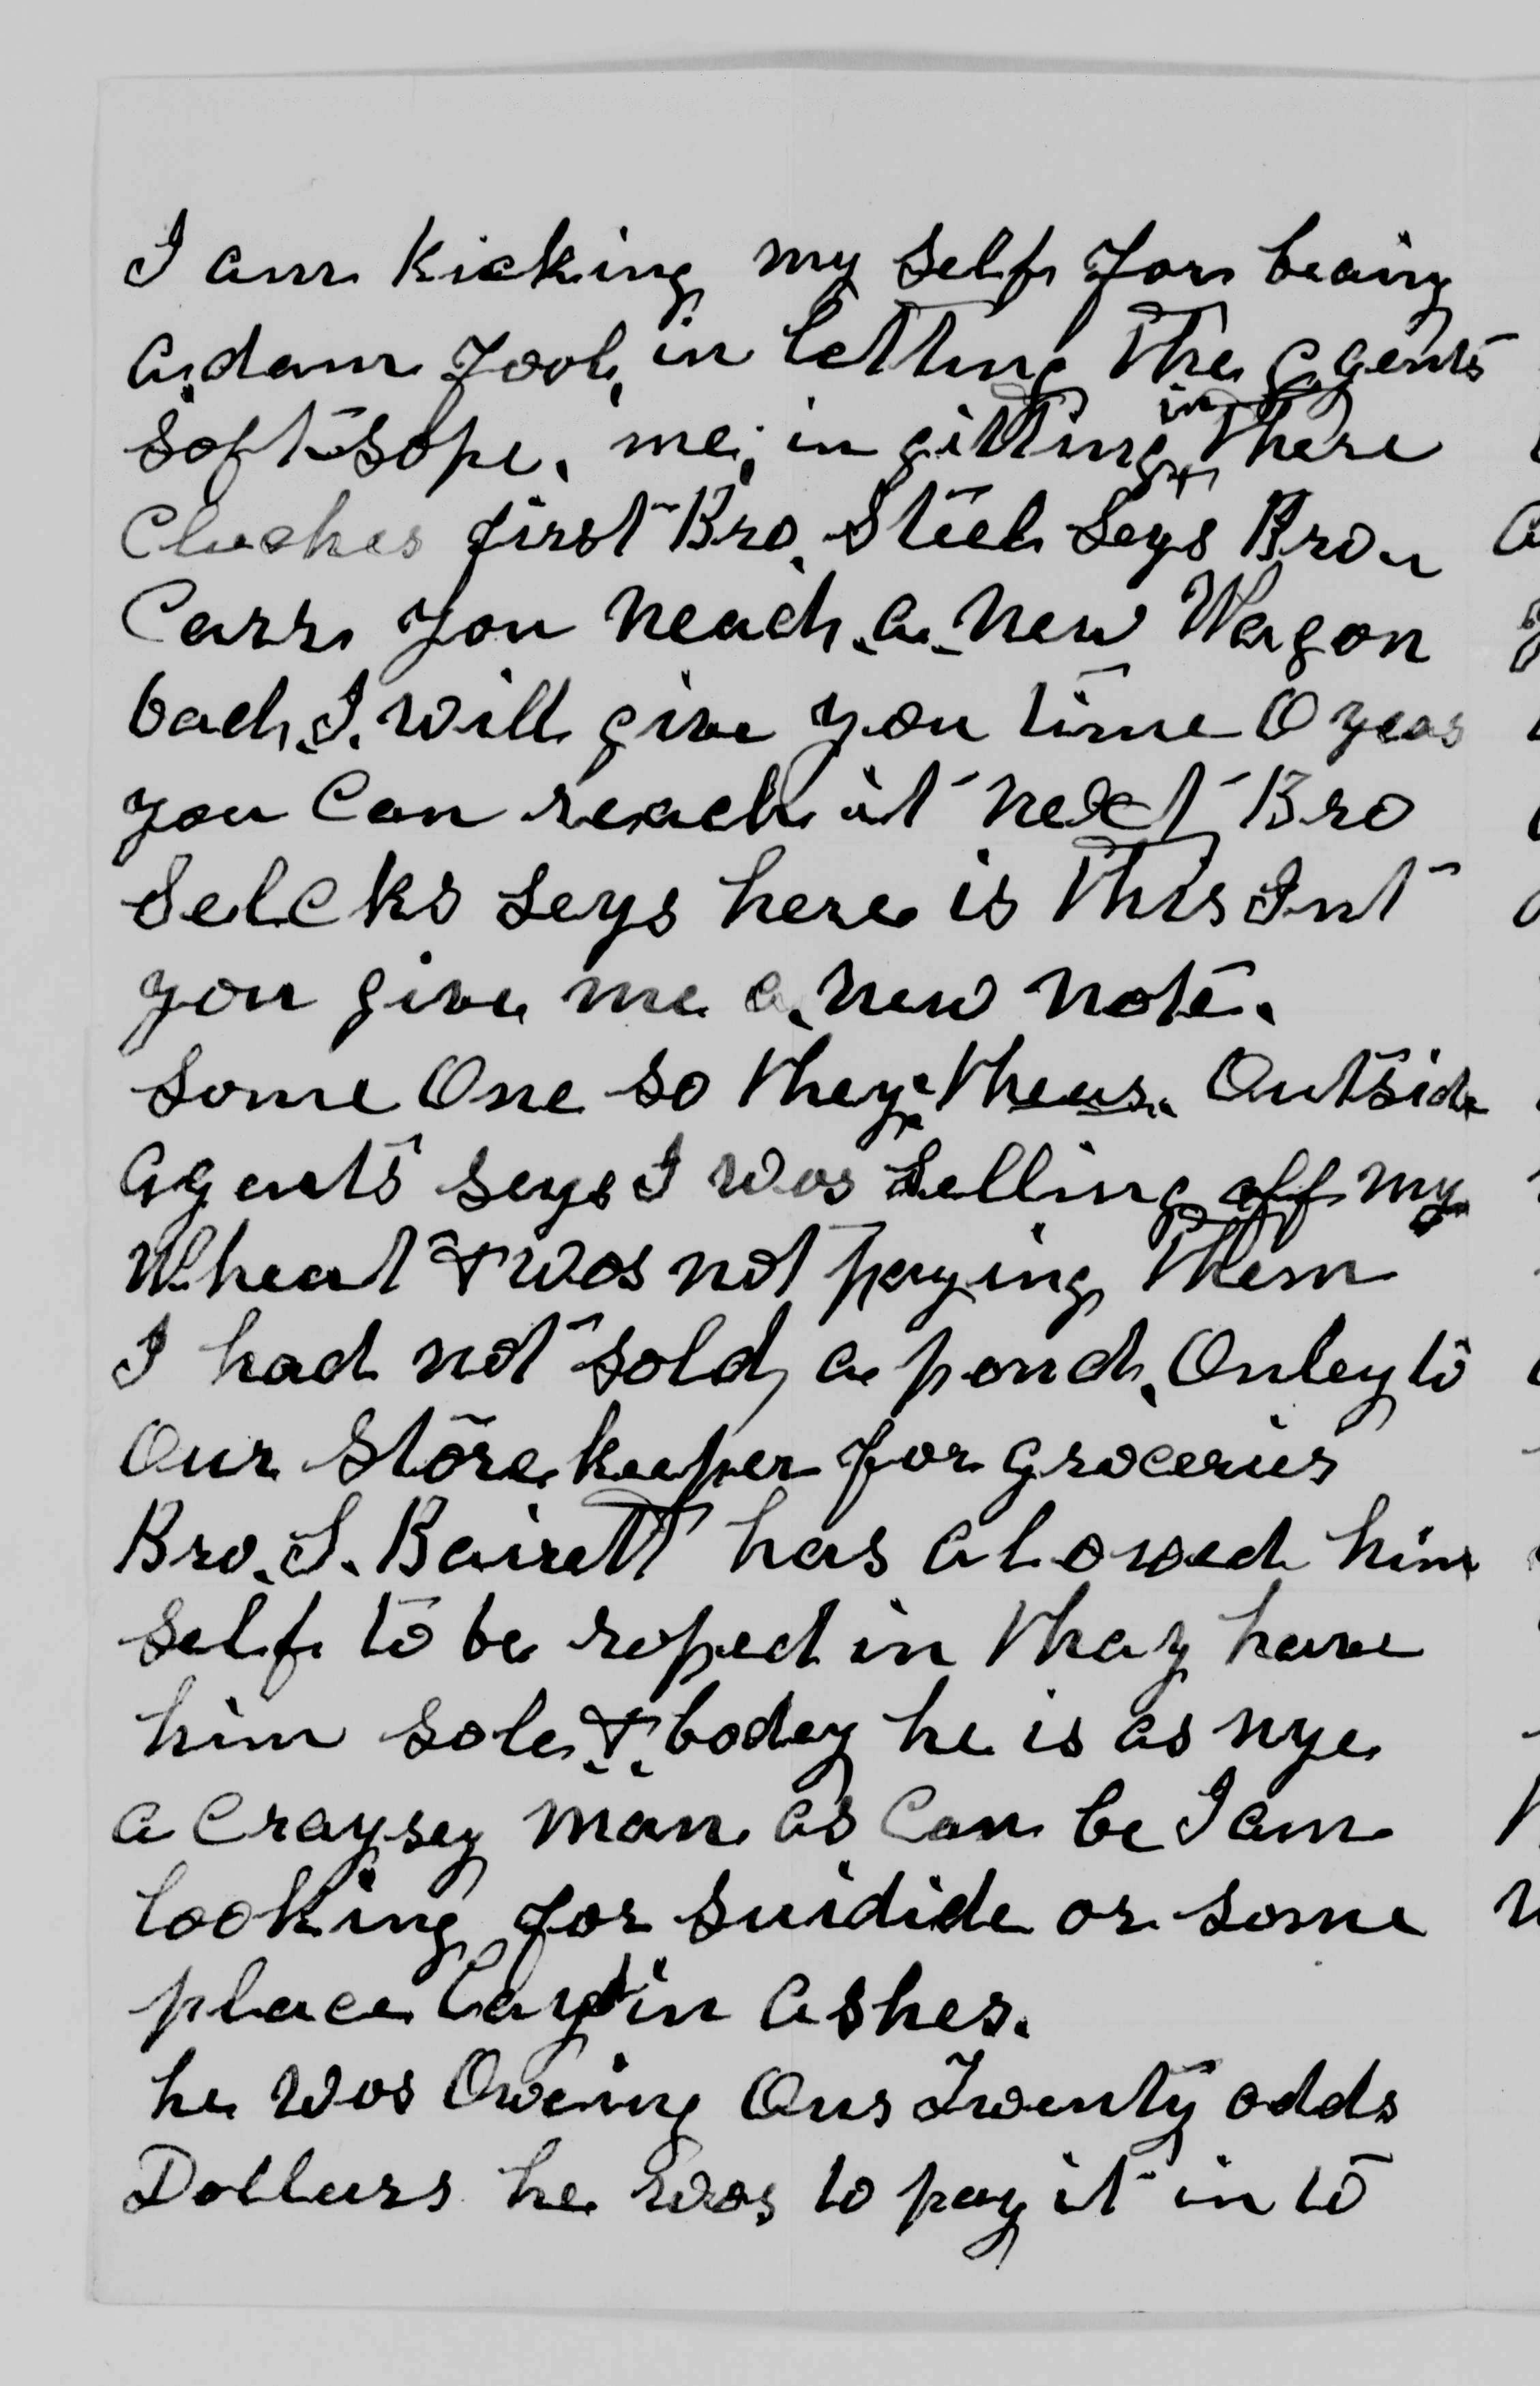 I am Kicking my Self for being
a dam Fool, in letting the agents
Soft Sope. me; in gitting in there
Cluches first Bro. Steel Seys Bro.
Carr you neach a new Wagon
bad, I. will give you time O yeas
you Can reach it next Bro
Selcks Seys here is this Int
you give me a new note.
Some One so they theas. Outside
agents seys I was Selling off my
Wheat & was not paying them
I had not sold, a pond, Onley to
Our Store keeper for groceries
Bro. S. Bairett has alowed him
self to be roped in thay have
him sole & bodey he is as nye
a Craysey man as Can be I am
looking for suidide or some
place layd in ashes.
he was Oweing Ous Twenty odds
Dollars he was to pay it in to